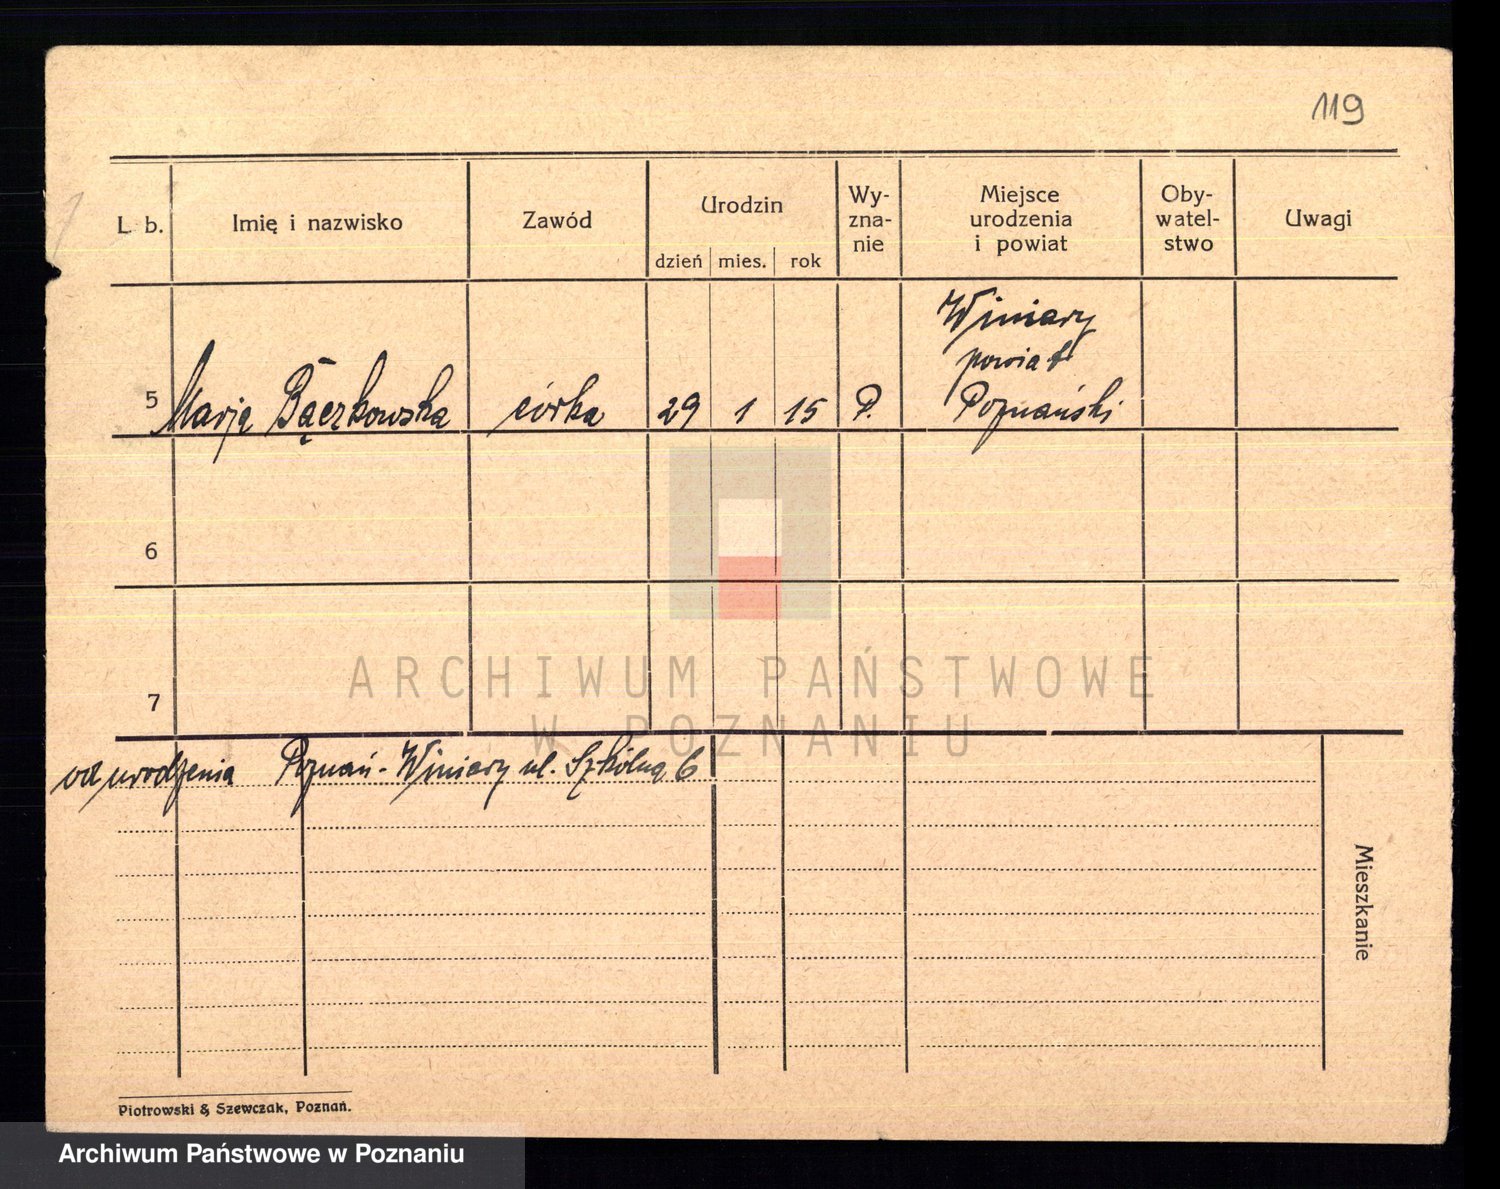 119
L. b.
Imię i nazwisko
Zawód
Urodzin
dzień mies. rok
Wy-
zna-
nie
Miejsce
urodzenia
i powiat
Oby-
watel-
stwo
Uwagi
Winiary
powiat
5 Marja Bączkowska córka 29 1 15 P. Poznański
6
7
ARCHIWUM PAŃSTWOWE
W POZNANIU
od urodzenia Poznań - Winiary ul. Szkólna 6
Mieszkanie
Piotrowski & Szewczak, Poznań.
Archiwum Państwowe w Poznaniu